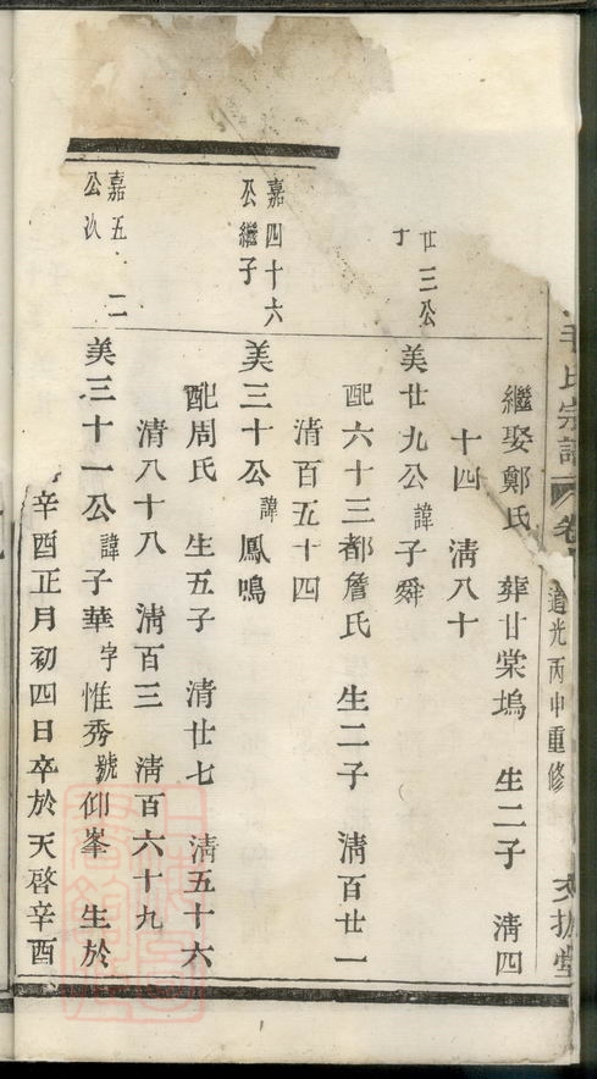 毛氏宗譜 卷 道光丙申重修
繼娶鄭氏 葬廿棠塢 生二子 清四
十四 清八十
廿三公
子
美廿九公諱子舜
配六十三都詹氏 生二子 清百廿一
清百五十四
嘉四十六
公繼子
美三十公諱鳳鳴
配周氏 生五子 清廿七 清五十六
清八十八 清百三 清百六十九
嘉五 二
公次
美三十一公諱子華字惟秀號仰峯 生於
辛酉正月初四日卒於天啓辛酉